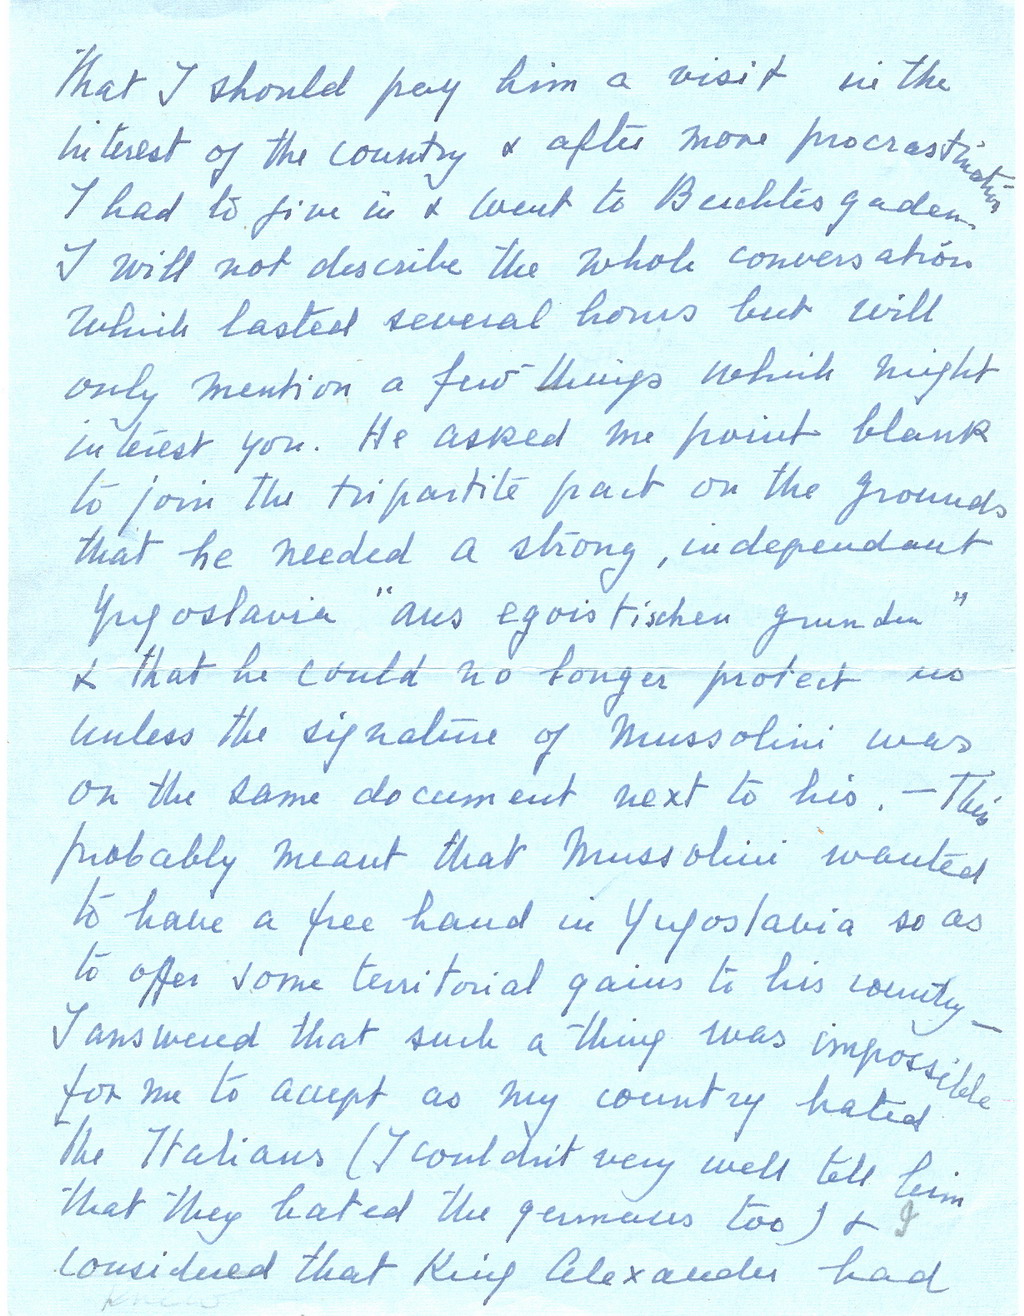 that I should pay him a visit in the
interest of the country & after more procrastination
I had to give in & went to Berchtesgaden.
I will not describe the whole conversation
which lasted several hours but will
only mention a few things which might
interest you. He asked me point blank
to join the tripartite pact on the grounds
that he needed a strong, independant
Yugoslavia "aus egoistischen grunden"
& that he could no longer protect us
unless the signature of Mussolini was
on the same document next to his. — This
probably meant that Mussolini wanted
to have a free hand in Yugoslavia so as
to offer some territorial gains to his country —
I answered that such a thing was impossible
for me to accept as my country hated
the Italians (I couldn't very well tell him
that they hated the germans too) & I
considered that King Alexander had
knew